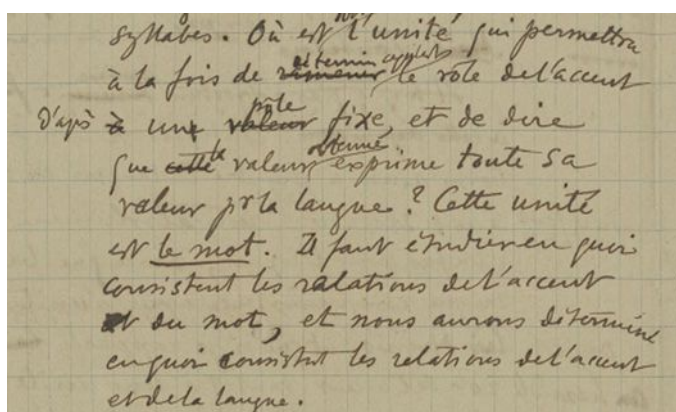 syllabes. Où est l'unité qui permettra
à la fois de ramener détermin le rôle de l'accent
d'après à une valeur pôle fixe, et de dire
que cette la valeur obtenue exprime toute sa
valeur pr la langue ? Cette unité
est le mot. Il faut étudier en quoi
consistent les relations de l'accent
et du mot, et nous aurons déterminé
en quoi consistent les relations de l'accent
et de la langue.